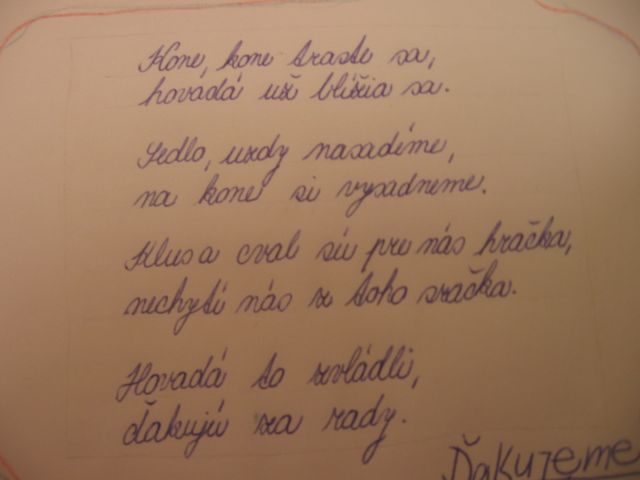 Kone, kone traste sa,
hovadá už blížia sa.
Sedlo, uzdy nasadíme,
na kone si vysadneme.
Klus a cval sú pre nás hračka,
nechytí nás z toho sračka.
Hovadá to zvládli,
ďakujú za rady.
Ďakujeme